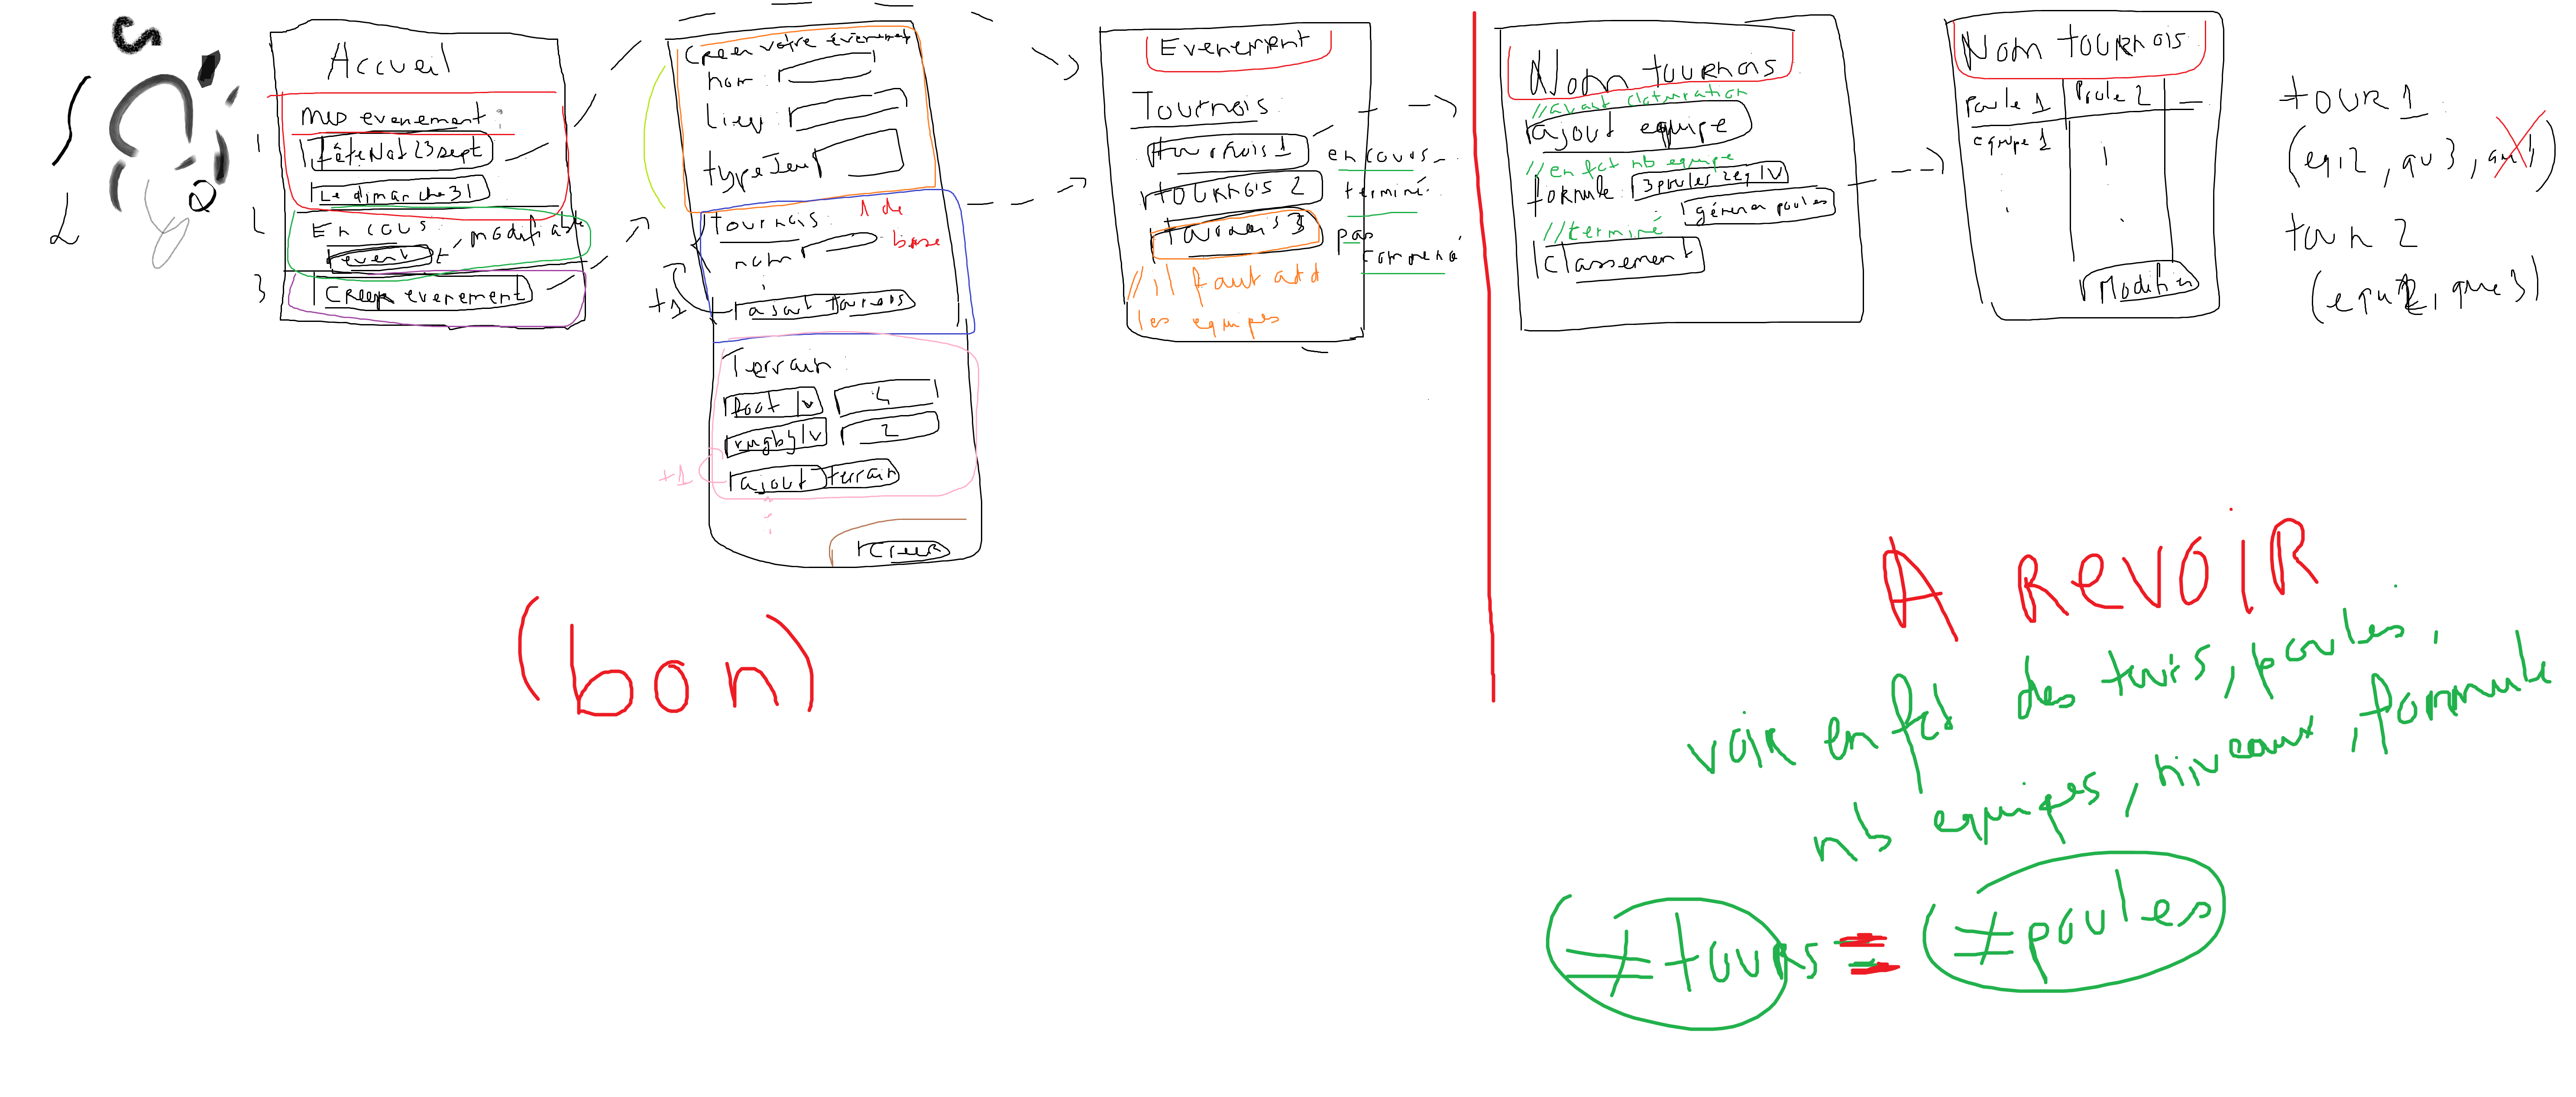 Accueil
mes evenement :
1
fêteNat 23 sept
Le dimanche 31
2
En cous :
event
modifiable
3
Creer evenement
Creer votre évènement
nom :
Lieu :
typeJeu
tournois :
1 de
base
nom
+1
ajout tournois
Terrain :
foot v
4
rugby v
2
+1
ajout terrain
Creer
Evenement
Tournois :
tournois 1
en cours
tournois 2
terminé
tournois 3
pas
commencé
// il faut add
les equipes
Nom tournois
//avant cloturation
ajout equipe
//en fct nb equipe
formule :
3poules 2eq v
gérerer poules
//terminé
Classement
Nom tournois
Poule 1
Poule 2
equipe 1
Modifier
tour 1
(eqi2, qu3,
tour 2
(bon)
A REVOIR
voir en fct des tours, poules,
nb equipes, niveaux, formule
≠ tours = ≠ poules